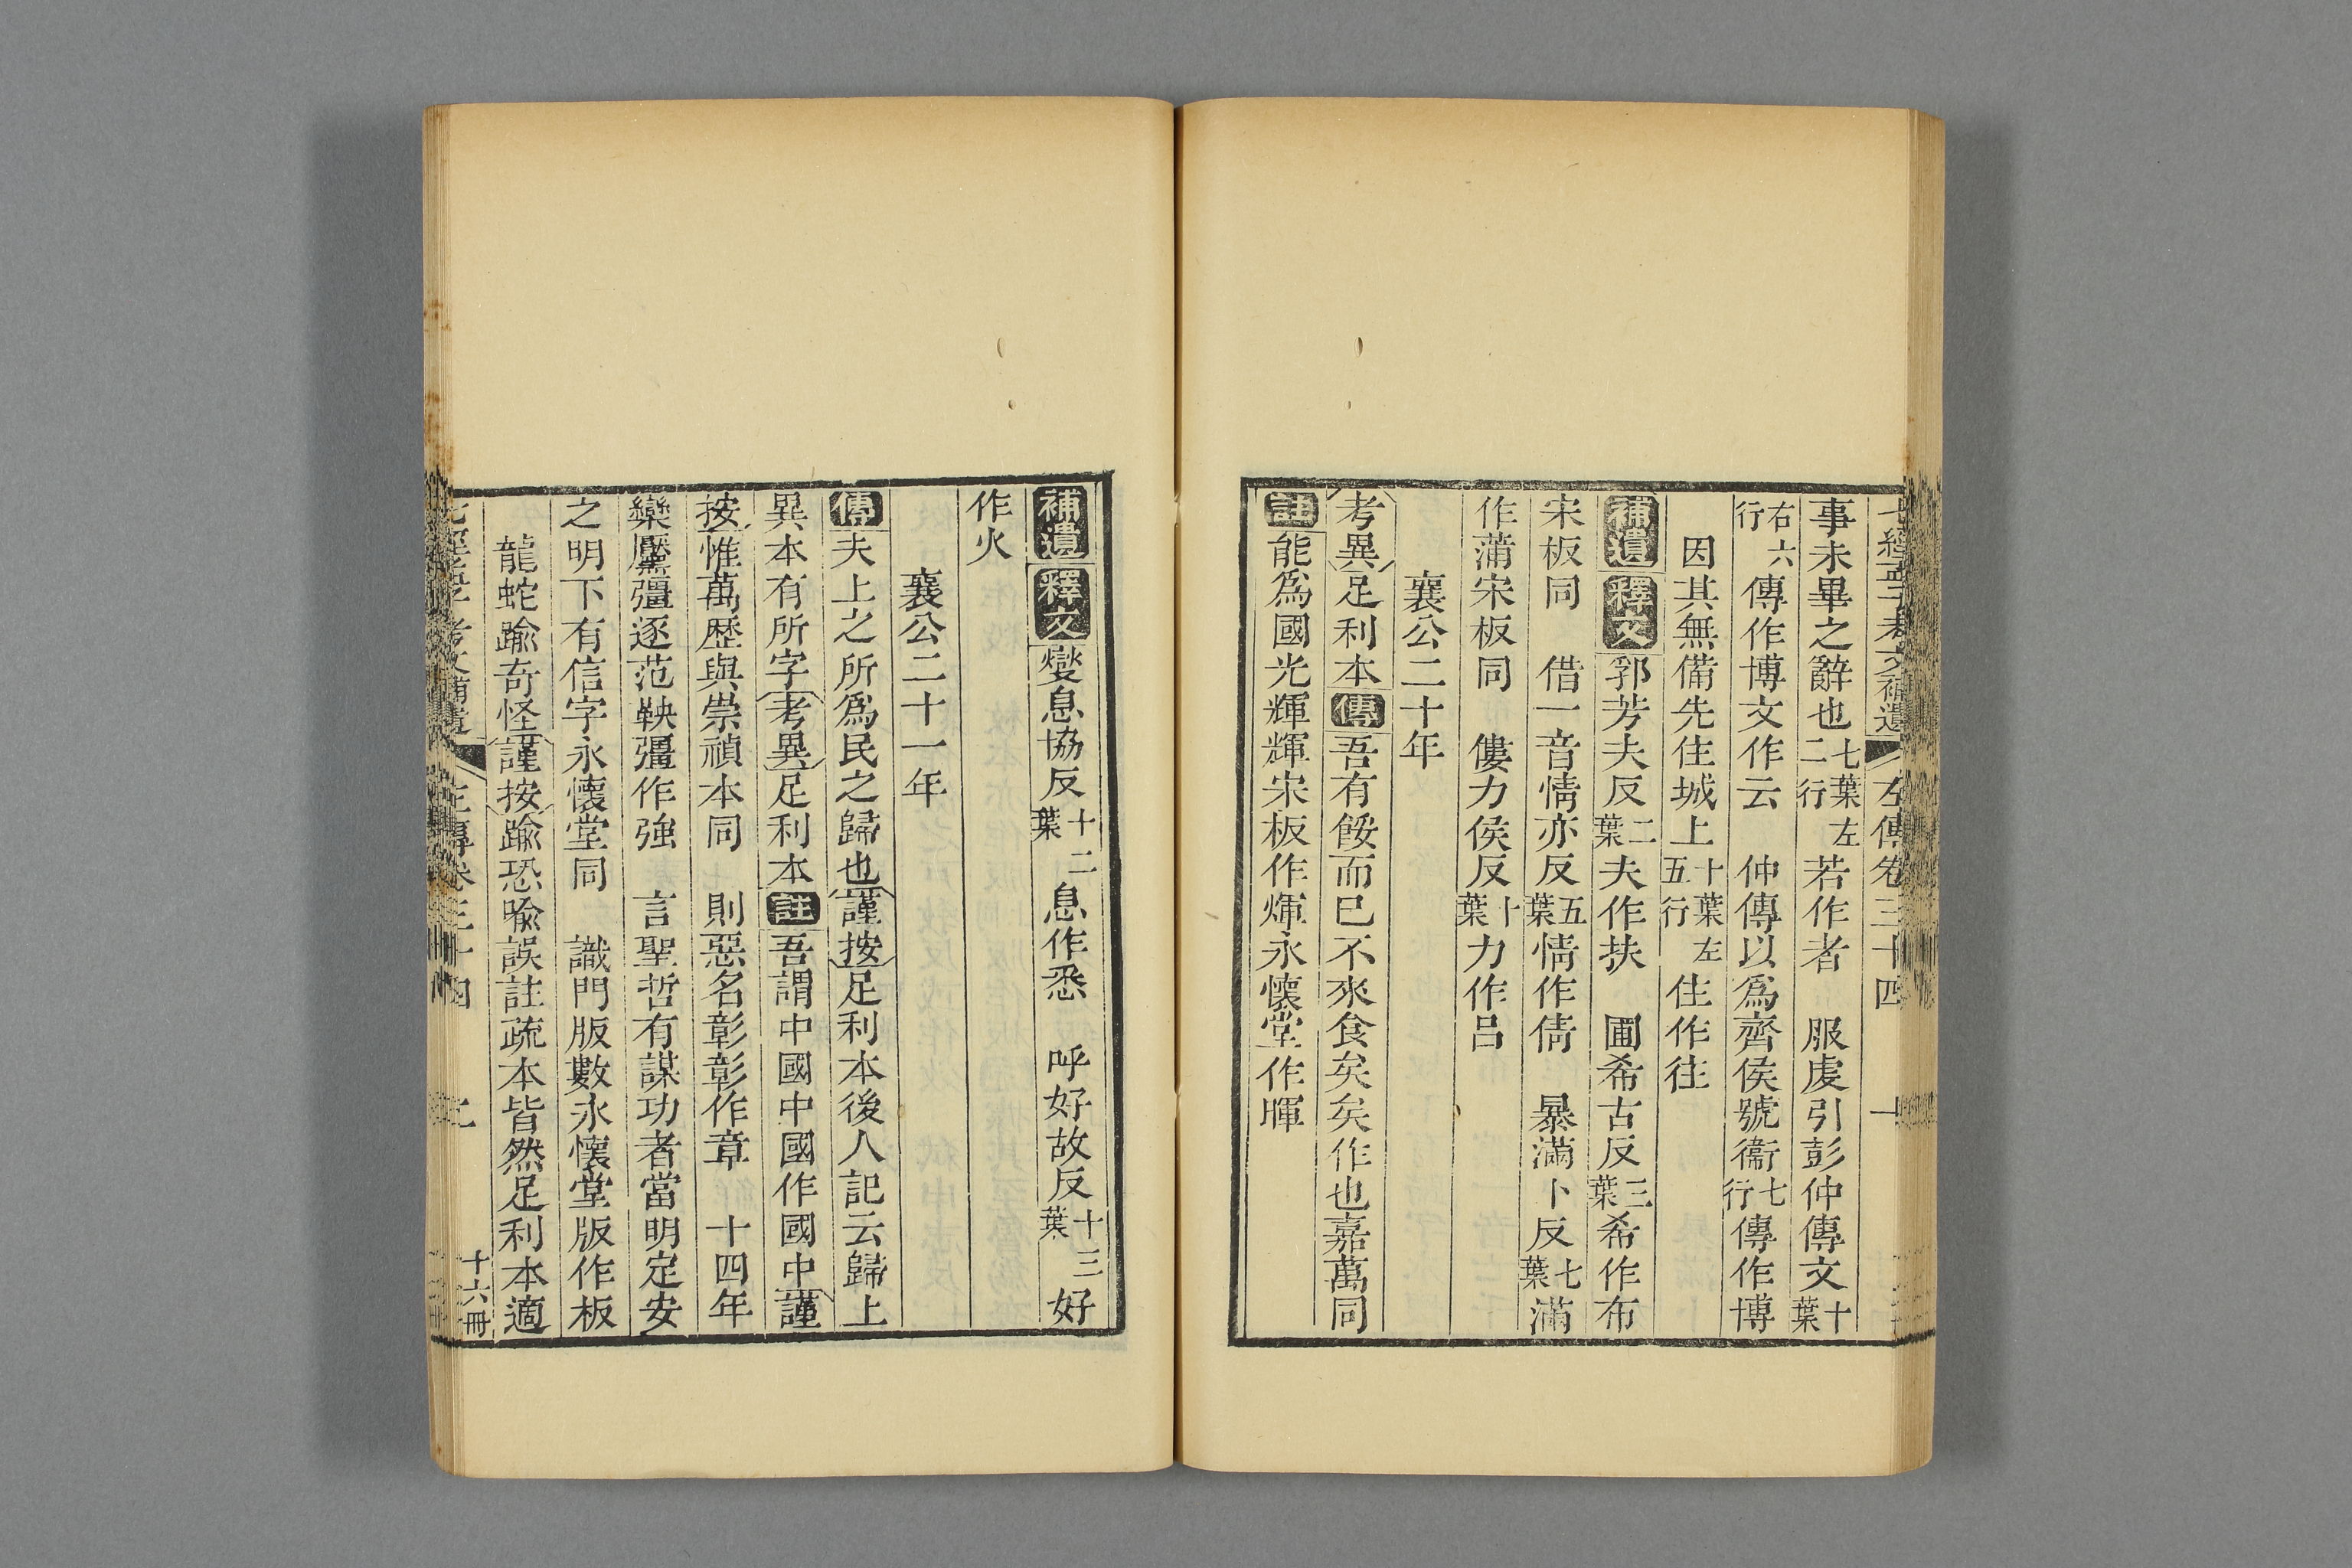 七經孟子考文補遺 左傳卷三十四 一
事未畢之辭也七葉左二行若作者 服虔引彭仲傳文十葉
右六行傳作博文作云 仲傳以爲齊侯號衞七行傳作博
因其無備先住城上十葉左五行住作往
補遺 釋文 郛芳夫反二葉夫作扶 圃希古反三葉希作布
宋板同 借一音情亦反五葉情作倩 暴滿卜反七葉滿
作蒲宋板同 僂力侯反十葉力作呂
襄公二十年
考異 足利本 傳 吾有餒而已不來食矣矣作也嘉萬同
註 能爲國光輝輝宋板作煇永懷堂作暉
補遺 釋文 燮息協反十二葉息作悉 呼好故反十三葉好
作火
襄公二十一年
傳 夫上之所爲民之歸也 謹按 足利本後人記云歸上
異本有所字 考異 足利本 註 吾謂中國中國作國中 謹
按 惟萬歷與崇禎本同 則惡名彰彰作章 十四年
欒黶彊逐范鞅彊作強 言聖哲有謀功者當明定安
之明下有信字永懷堂同 識門版數永懷堂版作板
龍蛇踰奇怪 謹按 踰恐喩誤註疏本皆然足利本適
七經孟子考文補遺 左傳卷三十四 十六冊